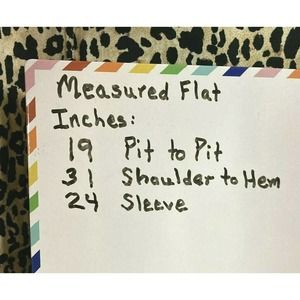 Measured Flat
Inches:
19 Pit to Pit
31 Shoulder to Hem
24 Sleeve